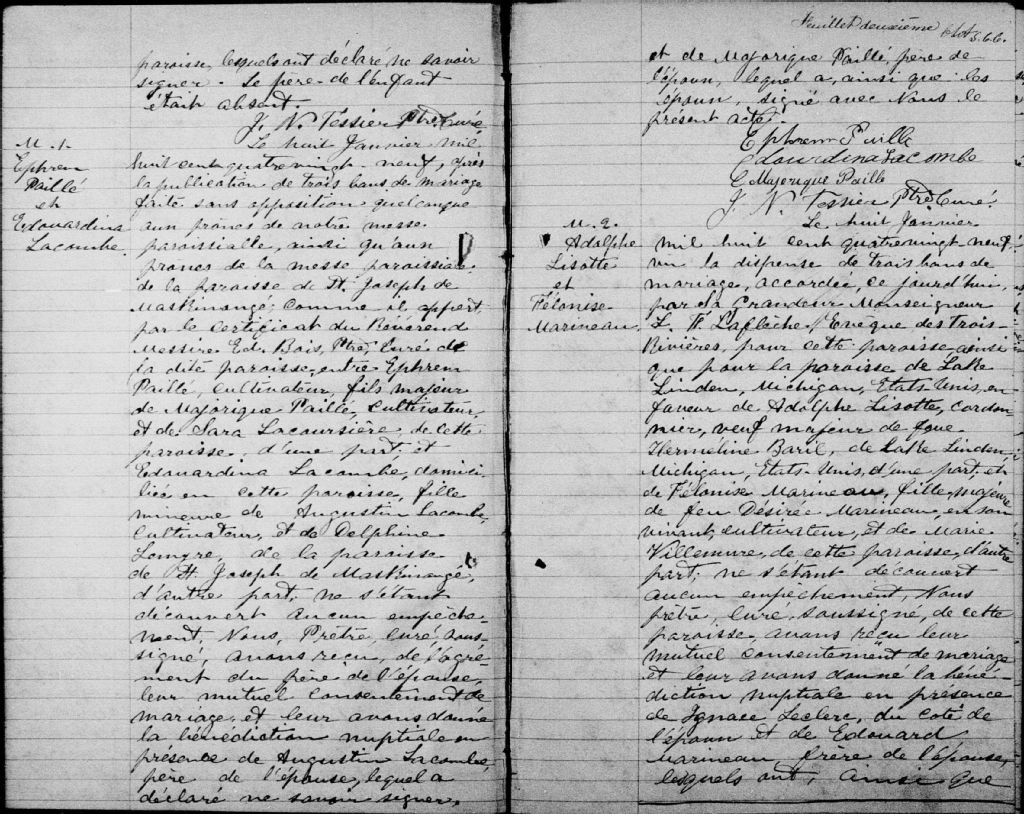 paroisse, lesquels ont déclaré ne savoir
signer. Le père de l'enfant
était absent.
J. N. Tessier Ptre Curé
M. 1.
Ephrem
Paillé
et
Edouardina
Lacombe
Le huit Janvier mil
huit cent quatre vingt-neuf, après
la publication de trois bans de mariage
faite sans opposition quelconque
aux prônes de notre messe
paroissialle, ainsi qu'aux
prones de la messe paroissiale
de la paroisse de St. Joseph de
Maskinongé, comme il appert
par le certificat du Révérend
Messire Ed. Bois, Ptre, Curé de
la dite paroisse, entre Ephrem
Paillé, cultivateur, fils majeur
de Majorique Paillé, cultivateur,
et de Sara Lacoursière de cette
paroisse, d'une part; et
Edouardina Lacombe, domici-
liée en cette paroisse, fille
mineure de Augustin Lacombe,
Cultivateur, et de Delphine
de la paroisse
de St. Joseph de Maskinongé,
d'autre part; ne s'étant
découvert aucun empêche-
ment, Nous, Prêtre, Curé, sous-
signé, avons reçu, de l'agré-
ment du père de l'épouse,
leur mutuel consentement de
mariage, et leur avons donné
la bénédiction nuptiale en
présence de Augustin Lacombe,
père de l'épouse, lequel a
déclaré ne savoir signer,
Feuillet deuxième
et de Majorique Paillé, père de
l'époux, lequel a, ainsi que les
époux, signé avec Nous le
present acte.
Ephrem Paille
Edouardina Lacombe
Majorique Paille
J. N. Tessier Ptre Curé.
M. 2.
Adolphe
Lisotte
et
Félonise
Marineau
Le huit Janvier
mil huit cent quatre vingt neuf,
vu la dispense de trois bans de
mariage, accordée, ce jourd'hui,
par Sa Grandeur Monseigneur
L. F. Laflèche, Evêque des Trois-
Rivières, pour cette paroisse ainsi
que pour la paroisse de Lake
Linden, Michigan, Etats-Unis, en
faveur de Adolphe Lisotte, cordon-
nier, veuf majeur de feue
Herméline Baril, de Lake Linden,
Michigan, Etats-Unis, d'une part; et
de Félonise Marineau, fille majeure
de feu Désirée Marineau, en son
vivant, cultivateur, et de Marie
Villemure, de cette paroisse, d'autre
part; ne s'étant découvert
aucun empêchement, Nous
prêtre, Curé, soussigné, de cette
paroisse, avons reçu leur
mutuel consentement de mariage
et leur avons donné la béné-
diction nuptiale en présence
de Ignace Leclerc, du coté de
l'époux et de Edouard
Marineau, frère de l'épouse,
lesquels ont, ainsi que